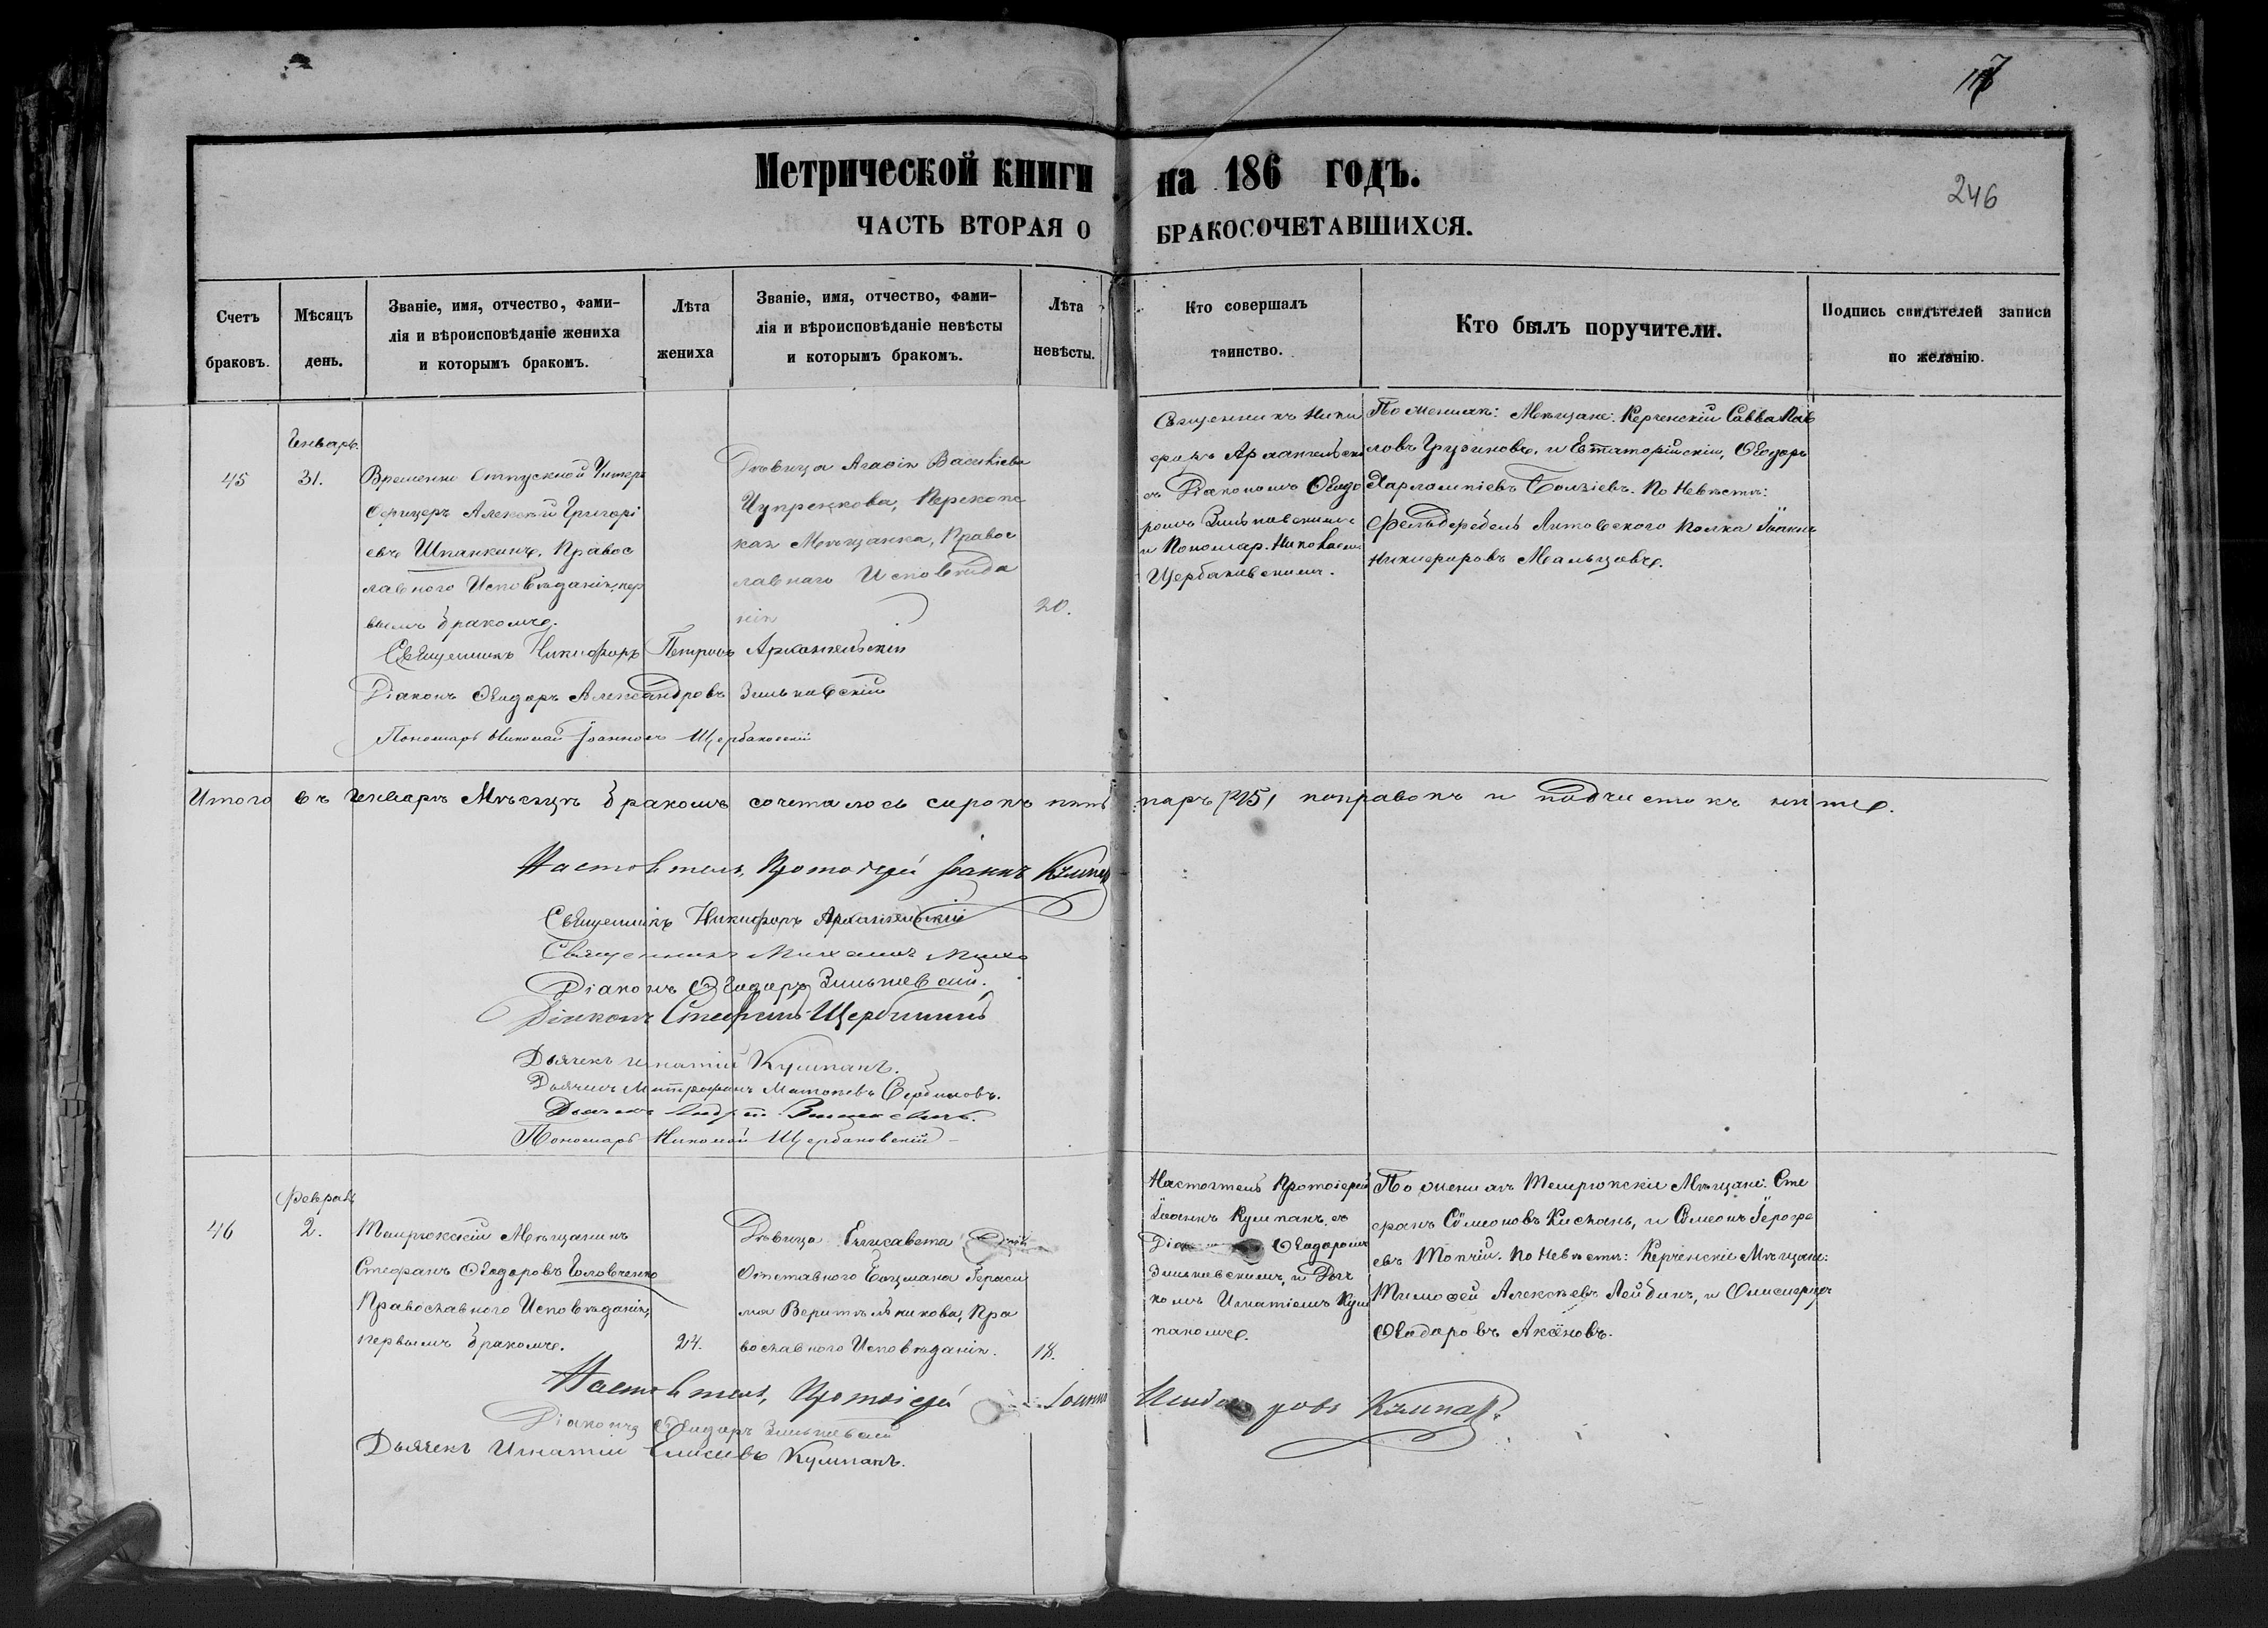 117
246
Метрической книги на 186 годъ.
ЧАСТЬ ВТОРАЯ О БРАКОСОЧЕТАВШИХСЯ.
Счетъ браковъ.
Мѣсяцъ день.
Званіе, имя, отчество, фами-
лія и вѣроисповѣданіе жениха
и которымъ бракомъ.
Лѣта жениха
Званіе, имя, отчество, фами-
лія и вѣроисповѣданіе невѣсты
и которымъ бракомъ.
Лѣта невѣсты.
Кто совершалъ таинство.
Кто былъ поручители.
Подпись свидѣтелей записи
по желанію.
45
Генварь
31.
Временно Отпускной Унтеръ
Офицеръ Алексѣй Григорі
евъ Шпанкинъ, Правос
лавного Исповѣданія, пер
вымъ бракомъ.
Дѣвица Агафія Васильева
Чупренкова, Перекопс
кая Мѣщанка, Правос
лавнаго Исповѣда
нія
20.
Священникъ Ники
форъ Архангельскі
съ Діакономъ Ѳеодо
ромъ Зиньковскимъ
и Пономар. Николаемъ
Щербаковскимъ.
По женихѣ: Мѣщане: Керченскій Савва Пав
ловъ Грузиновъ, и Евпаторійскій, Ѳеодоръ
Харлампіевъ По Невѣстѣ:
Фельдфебель Литовского полка Іоаннъ
Никифоровъ Мальцовъ.
Священникъ Никифоръ Петровъ Архангельскій
Діаконъ Ѳеодоръ Александровъ Зиньковскій
Пономарь Николай Іоанновъ Щербаковскій
Итого въ Генварѣ Мѣсяцѣ бракомъ сочеталось сорокъ пять паръ /45/ поправокъ и подчистокъ нѣтъ.
Настоятель, Протоіерей Іоаннъ Кумпанъ
Священникъ Никифоръ Архангельскій
Священникъ Михаилъ
Діаконъ Ѳеодоръ Зиньковскій.
Діаконъ Стефанъ Щербининъ
Дьячекъ Игнатій Кумпанъ.
Дьячекъ Митрофанъ Сербиновъ.
Дьячекъ Андрей
Пономарь Николай Щербаковскій
46
Февраль
2.
Темрюкскій Мѣщанинъ
Стефанъ Ѳеодоровъ Головченко
Православного Исповѣданія,
первымъ бракомъ.
24.
Дѣвица Елисавета Дочь
Отставного Боцмана Гераси
ма Веритѣльникова, Пра
вославного Исповѣданія.
18.
Настоятель Протоіерей
Іоаннъ Кумпанъ, съ
Діа Ѳеодоромъ
Зиньковскимъ, и Дьяч
комъ Игнатіемъ Кум
паномъ.
По женихѣ Темрюкскіе Мѣщане: Сте
фанъ Сѵмеоновъ Кискань, и Сѵмеонъ
евъ Топчій. По Невѣстѣ: Керченскіе Мѣщане:
Тимоѳей Алексѣевъ Лейбинъ, и
Ѳеодоровъ Аксёновъ.
Настоятель, Протоіерей Іоаннъ Кумпанъ
Діаконъ Ѳеодоръ Зиньковскій
Дьячекъ Игнатій Елисѣевъ Кумпанъ.